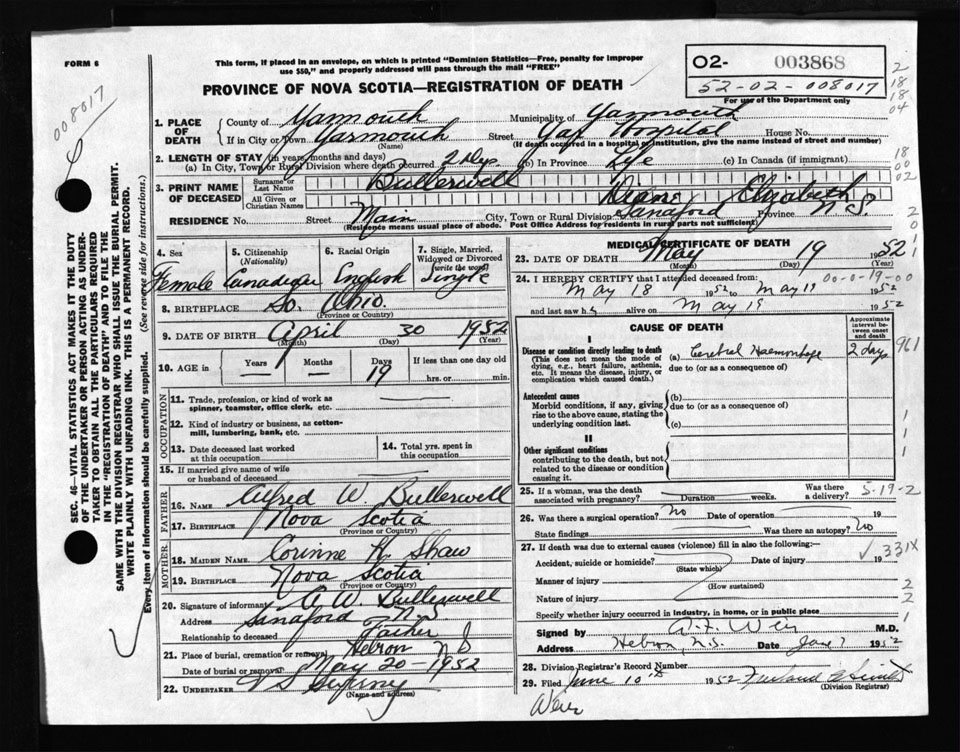 FORM 6
This form, if placed in an envelope, on which is printed "Dominion Statistics—Free, penalty for improper
use $50," and properly addressed will pass through the mail "FREE"
PROVINCE OF NOVA SCOTIA—REGISTRATION OF DEATH
O2- 003868
52-02-008017
For use of the Department only
008017
2
18
18
04
1. PLACE OF DEATH
County of Yarmouth Municipality of Yarmouth
If in City or Town Yarmouth Street Yar Hospital House No.
(Name) (If death occurred in a hospital or institution, give the name instead of street and number)
2. LENGTH OF STAY (in years, months and days)
(a) In City, Town or Rural Division where death occurred 2 Dys (b) In Province Life (c) In Canada (if immigrant)
18
00
02
3. PRINT NAME OF DECEASED
Surname or Last Name Bullerwell
All Given or Christian Names Diane Elizabeth
RESIDENCE No. Street Main City, Town or Rural Division Sanford Province N.S.
(Residence means usual place of abode. Post Office Address for residents in rural parts not sufficient)
4. Sex Female
5. Citizenship (Nationality) Canadian
6. Racial Origin English
7. Single, Married, Widowed or Divorced (write the word) Single
8. BIRTHPLACE So. Ohio
(Province or Country)
9. DATE OF BIRTH April 30 1952
(Month) (Day) (Year)
10. AGE in Years — Months — Days 19 If less than one day old
hrs. or min.
OCCUPATION
11. Trade, profession, or kind of work as spinner, teamster, office clerk, etc.
12. Kind of industry or business, as cotton-mill, lumbering, bank, etc.
13. Date deceased last worked at this occupation
14. Total yrs. spent in this occupation
15. If married give name of wife or husband of deceased
FATHER
16. NAME Alfred W. Bullerwell
17. BIRTHPLACE Nova Scotia
(Province or Country)
MOTHER
18. MAIDEN NAME Corinne H. Shaw
19. BIRTHPLACE Nova Scotia
(Province or Country)
20. Signature of informant A. W. Bullerwell
Address Sanaford N S
Relationship to deceased Father
21. Place of burial, cremation or removal Hebron N S
Date of burial or removal May 20-1952
22. UNDERTAKER V S Sweeny
(Name and address)
MEDICAL CERTIFICATE OF DEATH
23. DATE OF DEATH May 19 1952
(Month) (Day) (Year)
24. I HEREBY CERTIFY that I attended deceased from: 00-0-19-00
May 18 1952 to May 19 1952
and last saw h alive on May 19 1952
CAUSE OF DEATH
Approximate interval between onset and death
I
Disease or condition directly leading to death
(This does not mean the mode of dying, e.g., heart failure, asthenia, etc. It means the disease, injury, or complication which caused death.)
(a) Cerebral Haemorrhage 2 days 961
due to (or as a consequence of)
Antecedent causes
Morbid conditions, if any, giving rise to the above cause, stating the underlying condition last.
(b)
due to (or as a consequence of)
(c)
II
Other significant conditions
contributing to the death, but not related to the disease or condition causing it.
25. If a woman, was the death associated with pregnancy? Duration weeks. Was there a delivery? 5-19-2
26. Was there a surgical operation? No Date of operation 19
State findings Was there an autopsy? No
27. If death was due to external causes (violence) fill in also the following:—
Accident, suicide or homicide? Date of injury 19 331X
(State which)
Manner of injury
(How sustained)
Nature of injury
Specify whether injury occurred in industry, in home, or in public place
Signed by A. F. Weir M.D.
Address Hebron, N.S. Date June 7 1952
28. Division Registrar's Record Number
29. Filed June 10th 1952
(Division Registrar)
Weir
SEC. 46—VITAL STATISTICS ACT MAKES IT THE DUTY
OF THE UNDERTAKER OR PERSON ACTING AS UNDER-
TAKER TO OBTAIN ALL THE PARTICULARS REQUIRED
IN THE "REGISTRATION OF DEATH" AND TO FILE THE
SAME WITH THE DIVISION REGISTRAR WHO SHALL ISSUE THE BURIAL PERMIT.
WRITE PLAINLY WITH UNFADING INK. THIS IS A PERMANENT RECORD.
Every item of information should be carefully supplied. (See reverse side for instructions.)